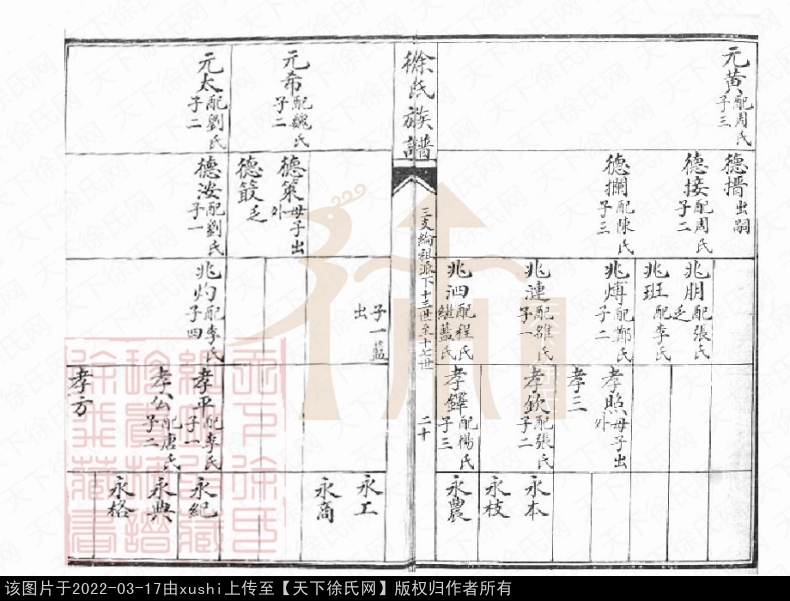 元黃配周氏
子三
德搢出嗣
德接配周氏
子二
德攔配陳氏
子三
兆朋配張氏
乏
兆班配李氏
兆煿配鄭氏
子二
兆漣配雒氏
子一
兆泗配程氏
繼藍氏
孝照母子出
外
孝三
孝欽配張氏
子二
孝鐸配楊氏
子三
永本
永枝
永農
徐氏族譜
三支綸祖派下十三世至十七世
二十
元希配魏氏
子二
元太配劉氏
子二
德策母子出
外
德籛乏
德汝配劉氏
子一
子一藍
出
兆灼配李氏
子四
孝平配李氏
子一
孝公配唐氏
子二
孝方
永工
永商
永紀
永典
永格
该图片于2022-03-17由xushi上传至【天下徐氏网】版权归作者所有